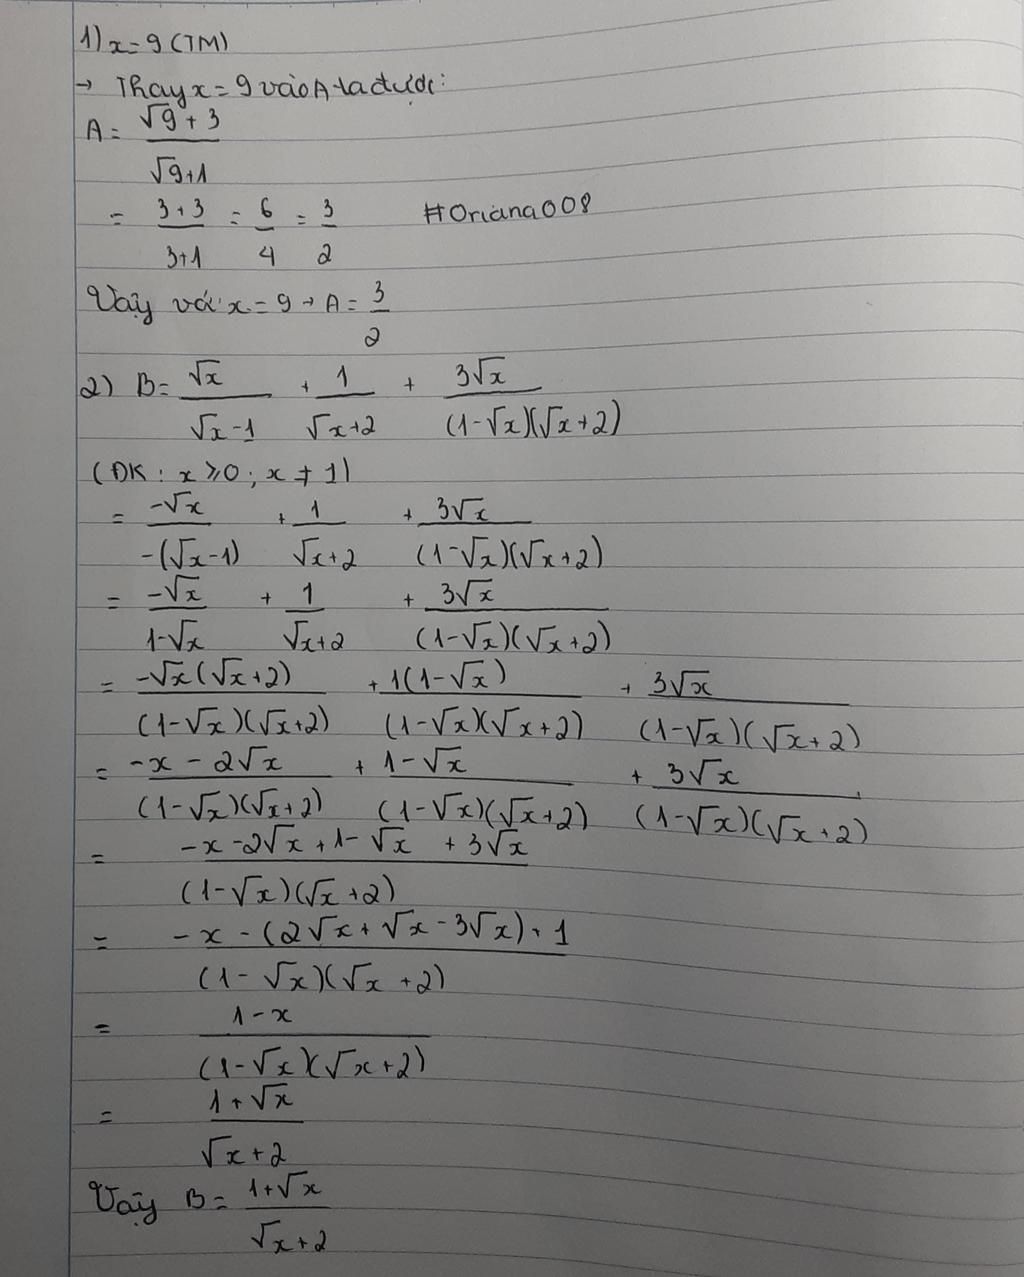 1) x = 9 (TM)
→ Thay x = 9 vào A ta được:
A = (√9 + 3)/(√9 + 1)
= (3 + 3)/(3 + 1) = 6/4 = 3/2 #Oriana008
Vậy với x = 9 → A = 3/2
2) B = √x/(√x - 1) + 1/(√x + 2) + 3√x/((1 - √x)(√x + 2))
(ĐK : x ⩾ 0 ; x ≠ 1)
= -√x/(-(√x - 1)) + 1/(√x + 2) + 3√x/((1 - √x)(√x + 2))
= -√x/(1 - √x) + 1/(√x + 2) + 3√x/((1 - √x)(√x + 2))
= -√x(√x + 2)/((1 - √x)(√x + 2)) + 1(1 - √x)/((1 - √x)(√x + 2)) + 3√x/((1 - √x)(√x + 2))
= (-x - 2√x)/((1 - √x)(√x + 2)) + (1 - √x)/((1 - √x)(√x + 2)) + 3√x/((1 - √x)(√x + 2))
= (-x - 2√x + 1 - √x + 3√x)/((1 - √x)(√x + 2))
= (-x - (2√x + √x - 3√x) + 1)/((1 - √x)(√x + 2))
= (1 - x)/((1 - √x)(√x + 2))
= (1 + √x)/(√x + 2)
Vậy B = (1 + √x)/(√x + 2)